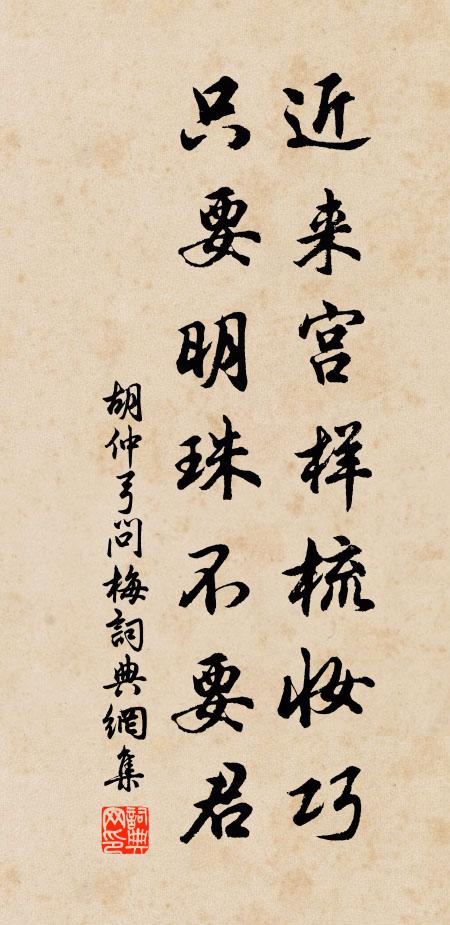 近来宫样梳妆巧
只要明珠不要君
胡仲弓问梅詞典網集
詞典網印